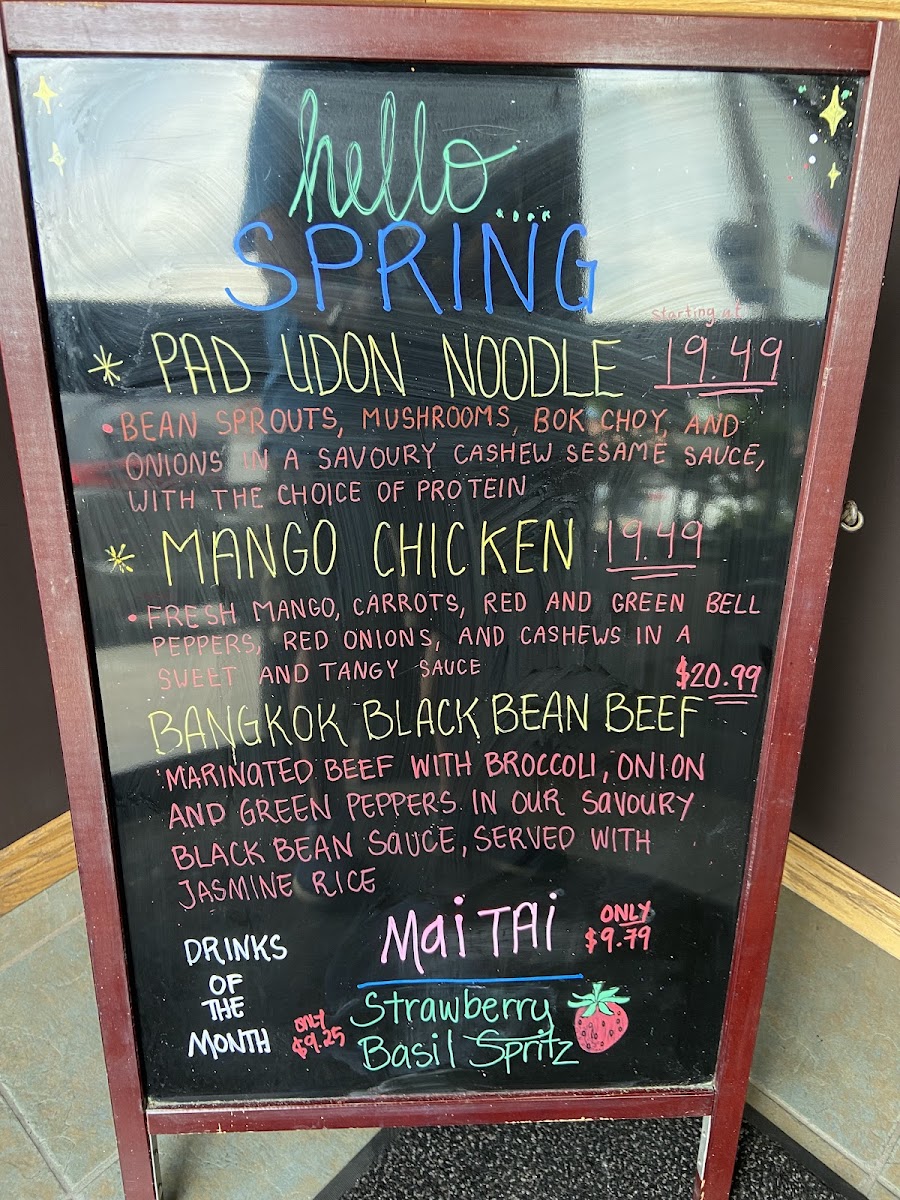 hello....
SPRING
starting at
* PAD UDON NOODLE 19.49
• BEAN SPROUTS, MUSHROOMS, BOK CHOY, AND
ONIONS IN A SAVOURY CASHEW SESAME SAUCE,
WITH THE CHOICE OF PROTEIN
* MANGO CHICKEN 19.49
• FRESH MANGO, CARROTS, RED AND GREEN BELL
PEPPERS, RED ONIONS, AND CASHEWS IN A
SWEET AND TANGY SAUCE
$20.99
BANGKOK BLACK BEAN BEEF
MARINATED BEEF WITH BROCCOLI, ONION
AND GREEN PEPPERS IN OUR SAVOURY
BLACK BEAN SAUCE, SERVED WITH
JASMINE RICE
DRINKS
OF
THE
MONTH
Mai TAi
ONLY
$9.79
Strawberry
Basil Spritz
ONLY
$9.25